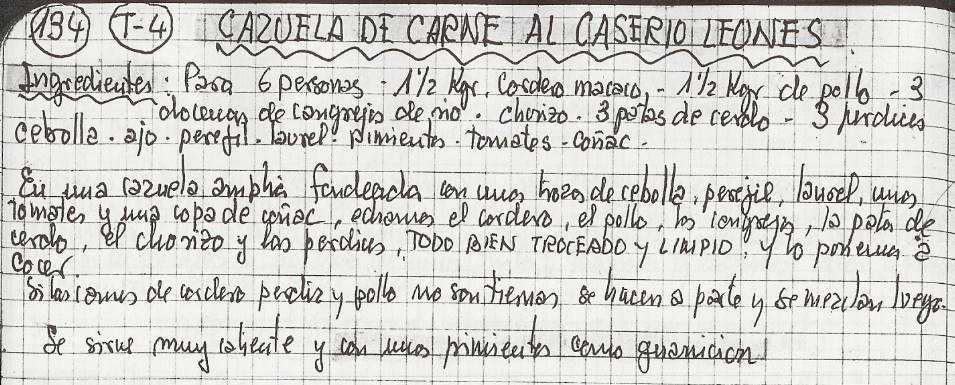 134 T-4 CAZUELA DE CARNE AL CASERIO LEONES
Ingredientes: Para 6 personas - 1 1/2 Kgr. Cordero - 1 1/2 Kgr de pollo - 3
docenas de cangrejos de rio. chorizo. 3 patas de cerdo - 3 perdices
cebolla. ajo. perejil. laurel. pimientos. tomates - coñac.
En una cazuela amplia fondeada con unos trozos de cebolla, perejil, laurel, unos
tomates y una copa de coñac, echamos el cordero, el pollo, los cangrejos, la pata de
cerdo, el chorizo y las perdices, TODO BIEN TROCEADO Y LIMPIO, y lo ponemos a
cocer.
Si las carnes de cordero perdiz y pollo no son tiernas se hacen a parte y se mezclan luego.
Se sirve muy caliente y con unos pimientos como guarnicion